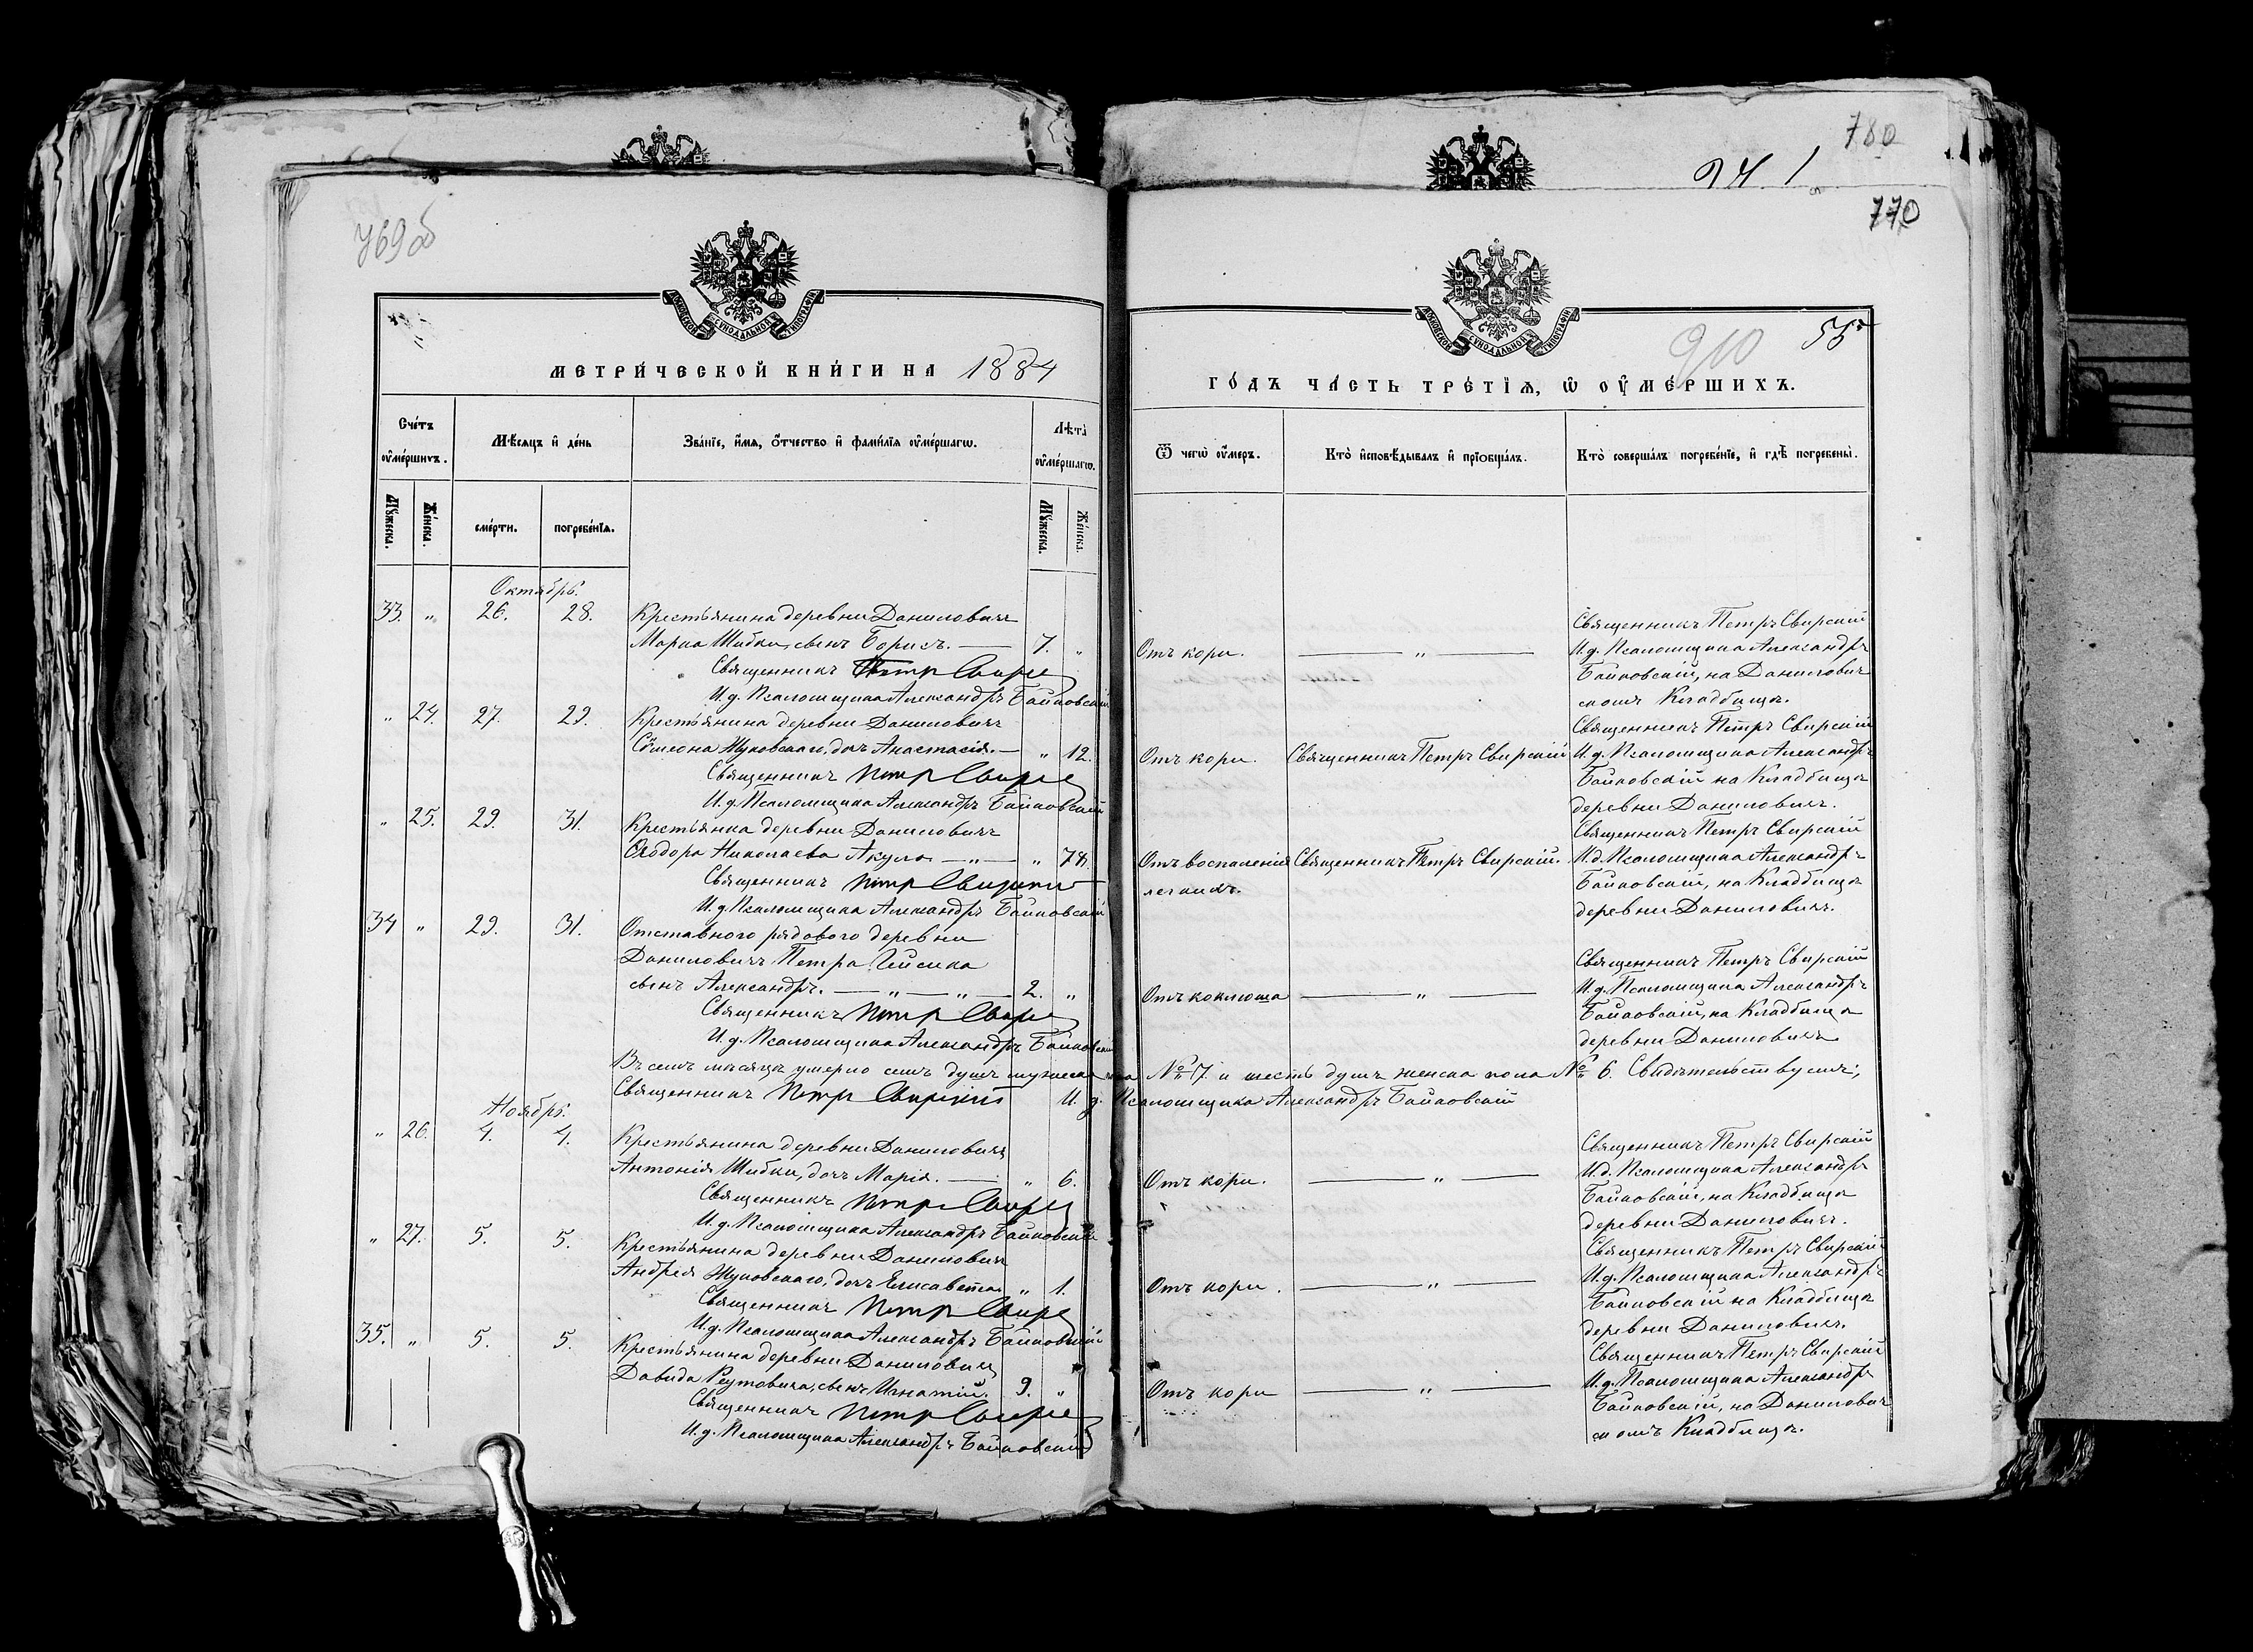 780
94. 1
769об
770
МОСКОВСКОЙ СУНОДАЛЬНОЙ ТИПОГРАФІИ
МОСКОВСКОЙ СУНОДАЛЬНОЙ ТИПОГРАФІИ
910
55
МЕТРИ́ЧЕСКОЙ КНИ́ГИ НА 1884
ГО́ДЪ ЧА́СТЬ ТРЕ́ТІѦ, Ѡ ОУМЕ́РШИХЪ.
Сче́тъ оумéршихъ.
Мѣ́сяцъ и҆ де́нь
Зва́нїе, и҆́мя, о҆́тчество и҆ фами́лїя оумéршагѡ.
Лѣта̀ оумéршагѡ.
Ѿ чегѡ̀ оу҆́меръ.
Кто̀ и҆сповѣ́дывалъ и҆ прїобща́лъ.
Кто̀ соверша́лъ погребе́нїе, и҆ гдѣ̀ погребены̀.
Мꙋ́жеска.
Же́нска.
сме́рти.
погребе́нїѧ.
Мꙋ́жеска.
Же́нска.
Октябрь.
33. „ 26. 28. Крестьянина деревни Даниловичъ
Марка Шибки, сынъ Борисъ. — 7. „
Священникъ Петръ Свирскій
И. д. Псаломщика Александръ Байковскій
Отъ кори. — „ —
Священникъ Петръ Свирскій
И. д. Псаломщика Александръ
Байковскій, на Данилович
скомъ Кладбищѣ.
„ 24. 27. 29. Крестьянина деревни Даниловичъ
Сѵмеона Жуковскаго, дочь Анастасія. — „ 12.
Священникъ Петръ Свирскій
И. д. Псаломщика Александръ Байковскій
Отъ кори. Священникъ Петръ Свирскій
Священникъ Петръ Свирскій
И. д. Псаломщика Александръ
Байковскій на Кладбищѣ
деревни Даниловичъ.
„ 25. 29. 31. Крестьянка деревни Даниловичъ
Ѳеодора Николаева Акула — „ — „ 78.
Священникъ Петръ Свирскій
И. д. Псаломщика Александръ Байковскій
Отъ воспаленія Священникъ Петръ Свирскій.
легкихъ.
Священникъ Петръ Свирскій
И. д. Псаломщика Александръ
Байковскій, на Кладбищѣ
деревни Даниловичъ.
34 „ 29. 31. Отставного рядового деревни
Даниловичъ Петра
сынъ Александръ. — „ — „ — 2. „
Священникъ Петръ Свирскій
И. д. Псаломщика Александръ Байковскій
Отъ коклюша — „ —
Священникъ Петръ Свирскій
И. д. Псаломщика Александръ
Байковскій, на Кладбищѣ
деревни Даниловичъ
Въ семъ мѣсяцѣ умерло семь душъ мужеска пола № 7. и шесть душъ женска пола № 6. Свидѣтельствуемъ;
Священникъ Петръ Свирскій И. д. Псаломщика Александръ Байковскій
Ноябрь.
„ 26. 4. 4. Крестьянина деревни Даниловичъ
Антонія Шибки, дочь Марія. — „ 6.
Священникъ Петръ Свирскій
И. д. Псаломщика Александръ Байковскій
Отъ кори. — „ —
Священникъ Петръ Свирскій
И. д. Псаломщика Александръ
Байковскій, на Кладбищѣ
деревни Даниловичъ.
„ 27. 5. 5. Крестьянина деревни Даниловичъ
Андрея Жуковскаго, дочь Елисавета „ 1.
Священникъ Петръ Свирскій
И. д. Псаломщика Александръ Байковскій
Отъ кори. — „ —
Священникъ Петръ Свирскій
И. д. Псаломщика Александръ
Байковскій на Кладбищѣ
деревни Даниловичъ.
35. „ 5. 5. Крестьянина деревни Даниловичъ
Давида Реутовича, сынъ Игнатій. 9. „
Священникъ Петръ Свирскій
И. д. Псаломщика Александръ Байковскій
Отъ кори — „ —
Священникъ Петръ Свирскій
И. д. Псаломщика Александръ
Байковскій, на Данилович
скомъ Кладбищѣ.